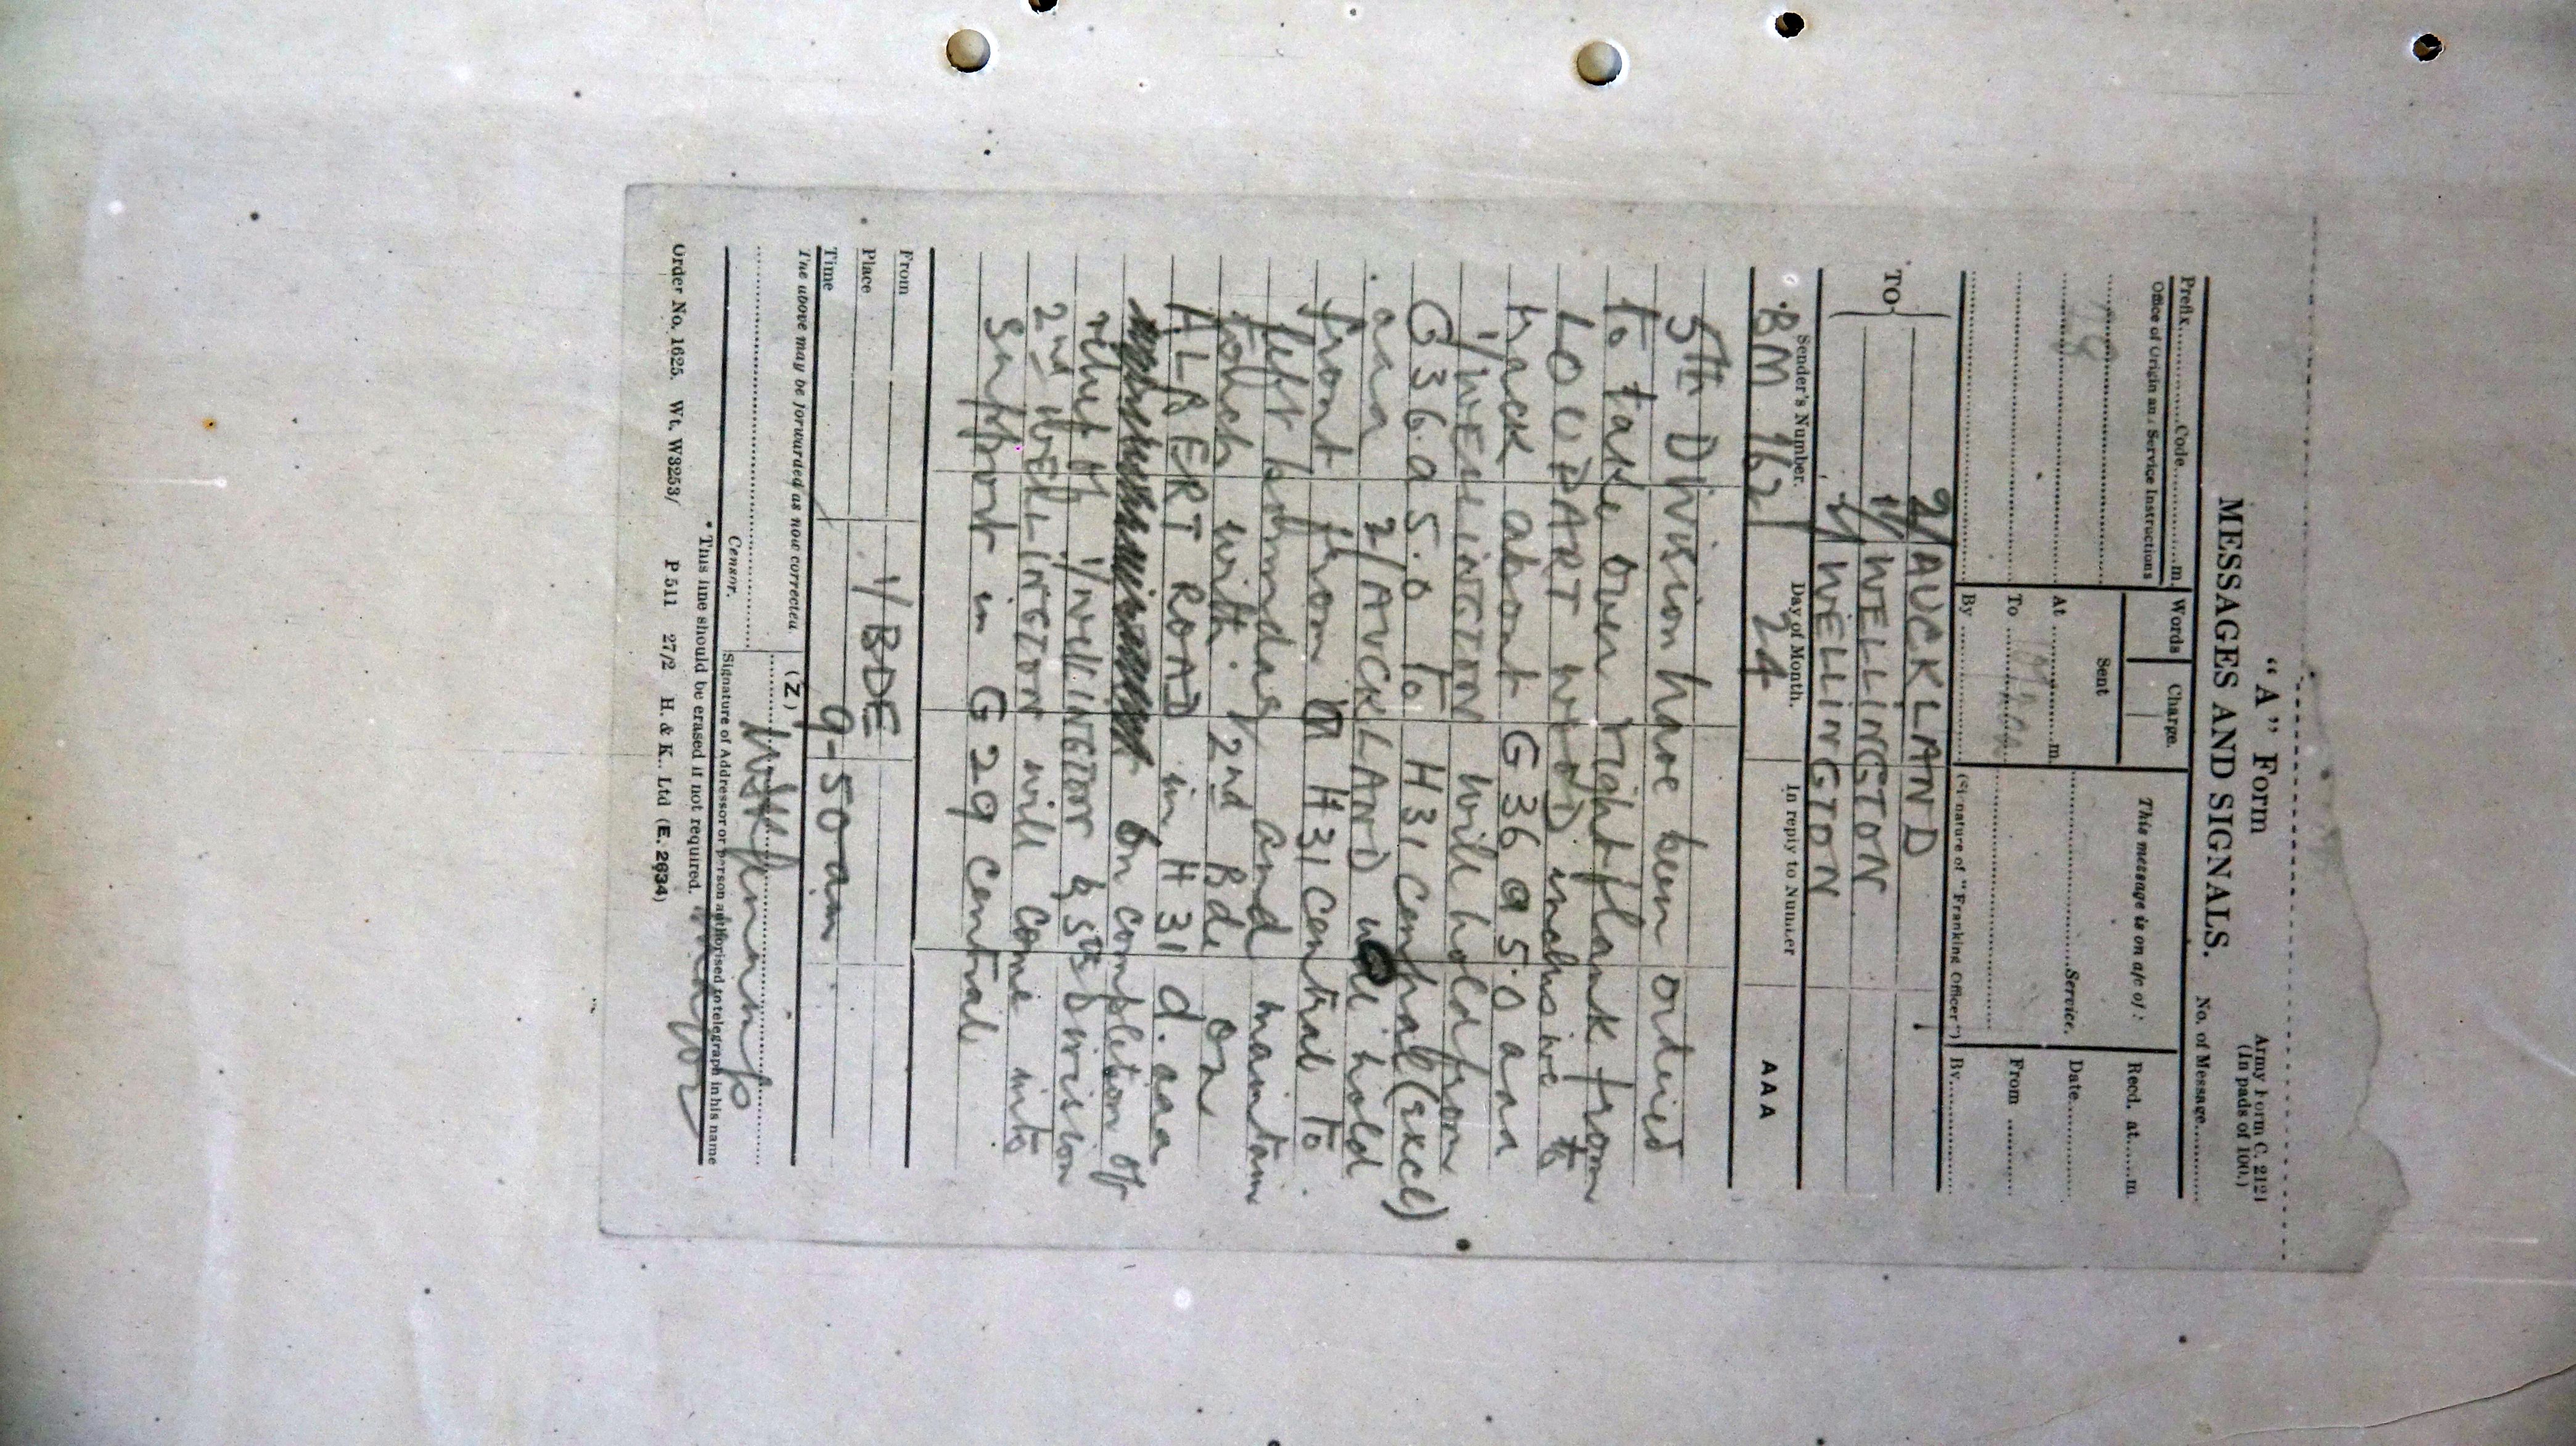 "A" Form
Army Form C. 2121
(In pads of 100.)
MESSAGES AND SIGNALS.
No. of Message
Prefix Code m.
Words
Charge.
This message is on a/c of:
Recd. at m
Office of Origin and Service Instructions
Sent
Date
At m.
Service.
From
To
By
(Signature of "Franking Officer")
By
TO
2/AUCKLAND
1/WELLINGTON
2/WELLINGTON
Sender's Number.
Day of Month.
In reply to Number
AAA
BM 162
24
5th Division have been ordered
to take over right flank from
LOUPART WOOD inclusive to
track about G 36 a 5.0 aaa
1/WELLINGTON will hold from
G 36.a 5.0 to H 31 central (excl)
aaa 2/AUCKLAND will hold
front from H 31 central to
left boundary and maintain
touch with 2nd Bde on
ALBERT ROAD in H 31 d. aaa
on completion of
relief of 1/WELLINGTON by 5th Division
2nd WELLINGTON will come into
support in G 29 central
From
Place
1/BDE
Time
9-50 am
The above may be forwarded as now corrected.
(Z)
Censor.
Signature of Addressor or person authorised to telegraph in his name
* This line should be erased if not required.
Major
Order No. 1625. Wt. W3253/ P 511 27/2 H. & K., Ltd (E. 2634)